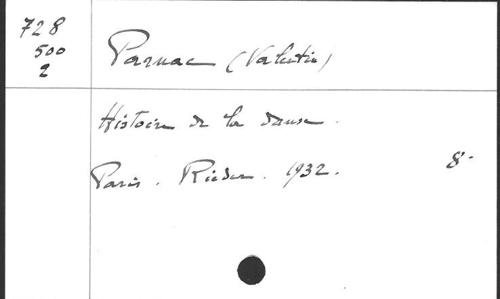 728
500
2
Parnac (Valentin)
Histoire de la danse.
Paris. Rieder. 1932. 8°